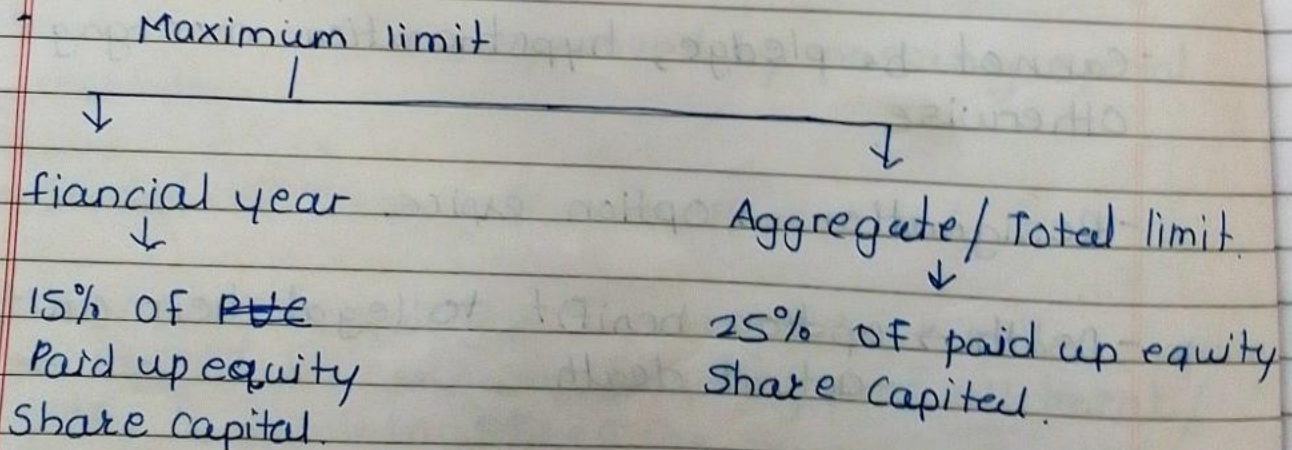 Maximum limit
fiancial year
15% of
Paid up equity
Share capital.
Aggregate/ Total limit.
25% of paid up equity
Share Capital.